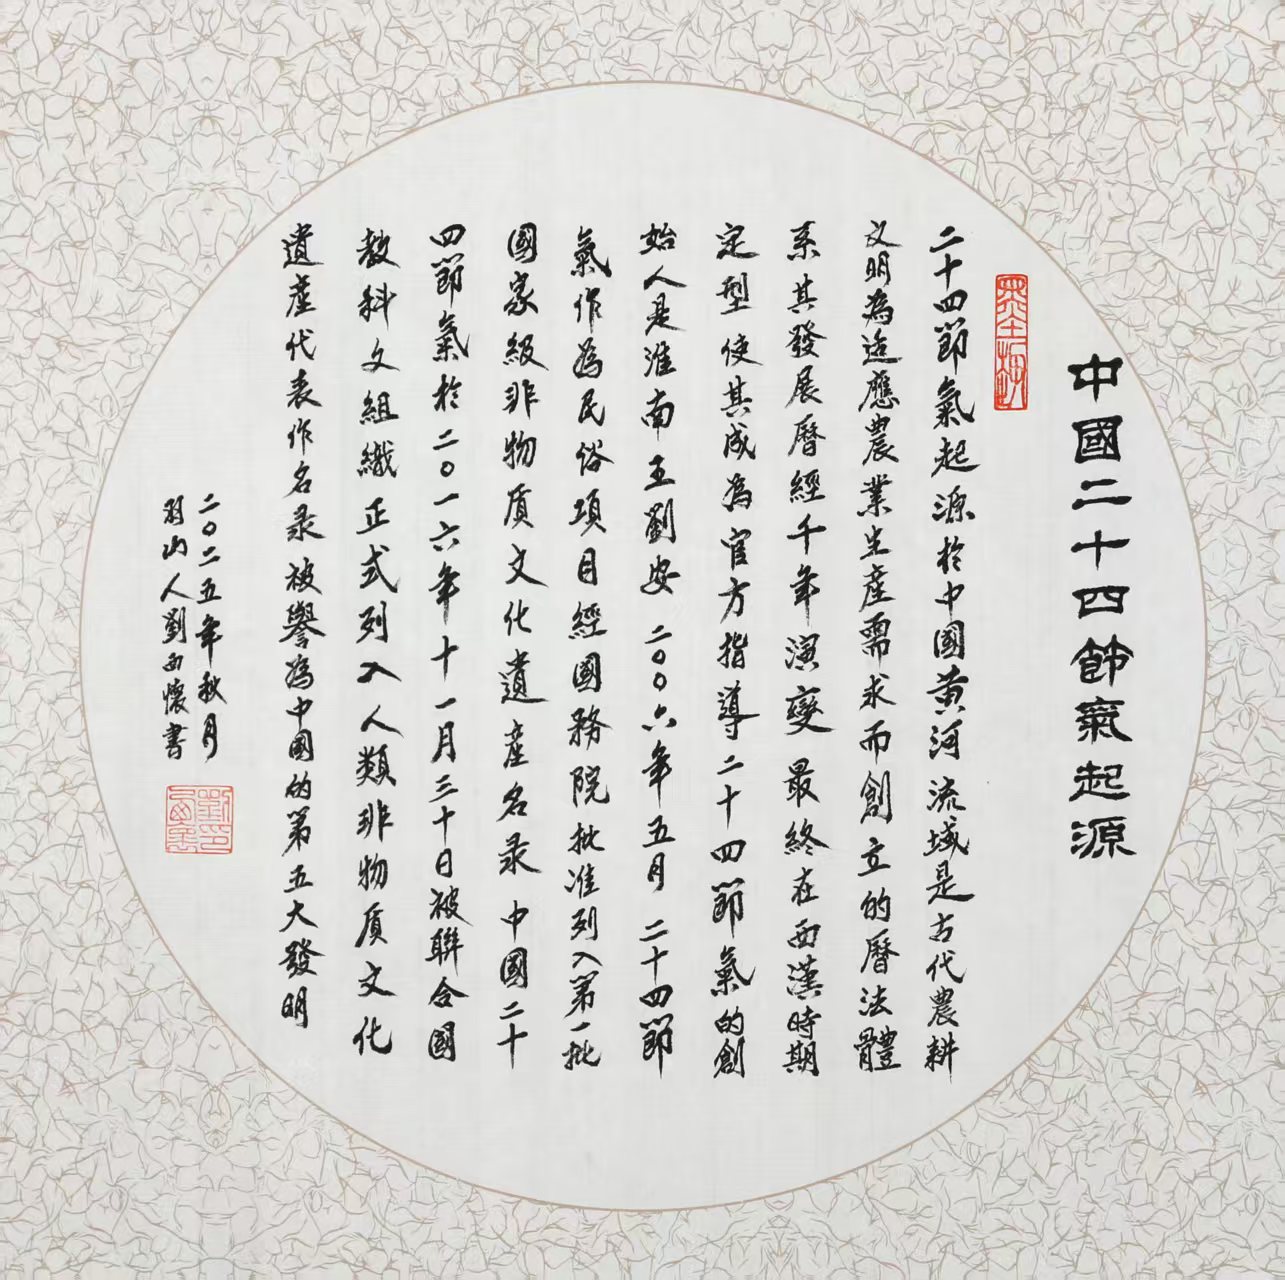 中國二十四節氣起源
二十四節氣起源於中國黄河流域是古代農耕
文明為适應農業生產需求而創立的曆法體
系其發展曆經千年演變最終在西漢時期
定型使其成為官方指導二十四節氣的創
始人是淮南王劉安二〇〇六年五月二十四節
氣作為民俗項目經國務院批准列入第一批
國家級非物质文化遺產名录中國二十
四節氣於二〇一六年十一月三十日被聯合國
教科文組織正式列入人類非物质文化
遺產代表作名录被譽為中國的第五大發明
二〇二五年秋月
羽山人劉西懷書